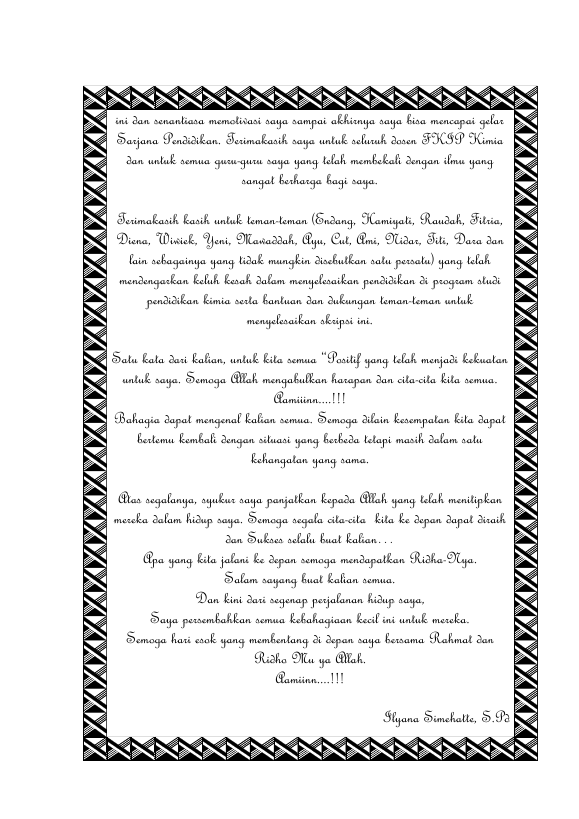 ini dan senantiasa memotivasi saya sampai akhirnya saya bisa mencapai gelar
Sarjana Pendidikan. Terimakasih saya untuk seluruh dosen FKIP Kimia
dan untuk semua guru-guru saya yang telah membekali dengan ilmu yang
sangat berharga bagi saya.
Terimakasih kasih untuk teman-teman (Endang, Hamiyati, Raudah, Fitria,
Diena, Wiwiek, Yeni, Mawaddah, Ayu, Cut, Ami, Nidar, Titi, Dara dan
lain sebagainya yang tidak mungkin disebutkan satu persatu) yang telah
mendengarkan keluh kesah dalam menyelesaikan pendidikan di program studi
pendidikan kimia serta bantuan dan dukungan teman-teman untuk
menyelesaikan skripsi ini.
Satu kata dari kalian, untuk kita semua "Positif yang telah menjadi kekuatan
untuk saya. Semoga Allah mengabulkan harapan dan cita-cita kita semua.
Aamiiinn....!!!
Bahagia dapat mengenal kalian semua. Semoga dilain kesempatan kita dapat
bertemu kembali dengan situasi yang berbeda tetapi masih dalam satu
kehangatan yang sama.
Atas segalanya, syukur saya panjatkan kepada Allah yang telah menitipkan
mereka dalam hidup saya. Semoga segala cita-cita kita ke depan dapat diraih
dan Sukses selalu buat kalian...
Apa yang kita jalani ke depan semoga mendapatkan Ridha-Nya.
Salam sayang buat kalian semua.
Dan kini dari segenap perjalanan hidup saya,
Saya persembahkan semua kebahagiaan kecil ini untuk mereka.
Semoga hari esok yang membentang di depan saya bersama Rahmat dan
Ridho Mu ya Allah.
Aamiinn....!!!
Ilyana Simehatte, S.Pd